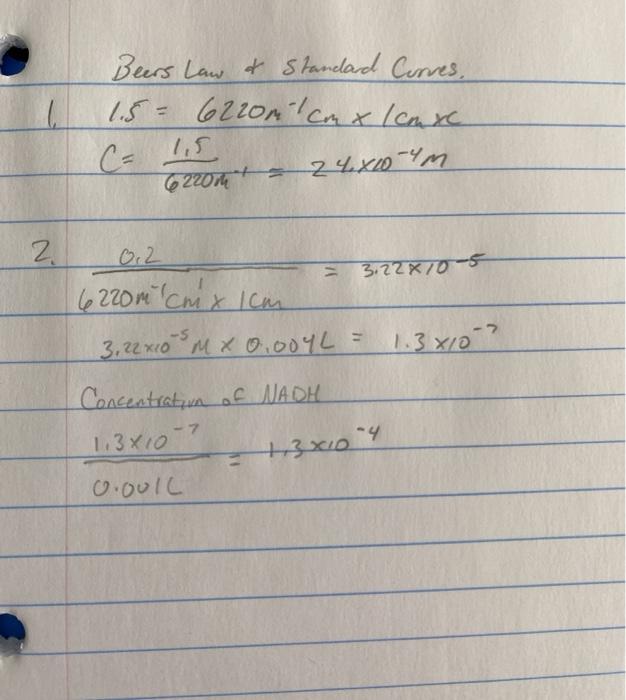 Beers Law & Standard Curves.
1. 1.5 = 6220m⁻¹cm x 1cm xc
C = 1.5 / 6220M⁻¹ = 24.x10⁻⁴M
2. 0.2 / 6220m⁻¹cm¹ x 1cm = 3.22x10⁻⁵
3.22x10⁻⁵ M x 0.004L = 1.3 x10⁻⁷
Concentration of NADH
1.3x10⁻⁷ / 0.001L = 1.3x10⁻⁴